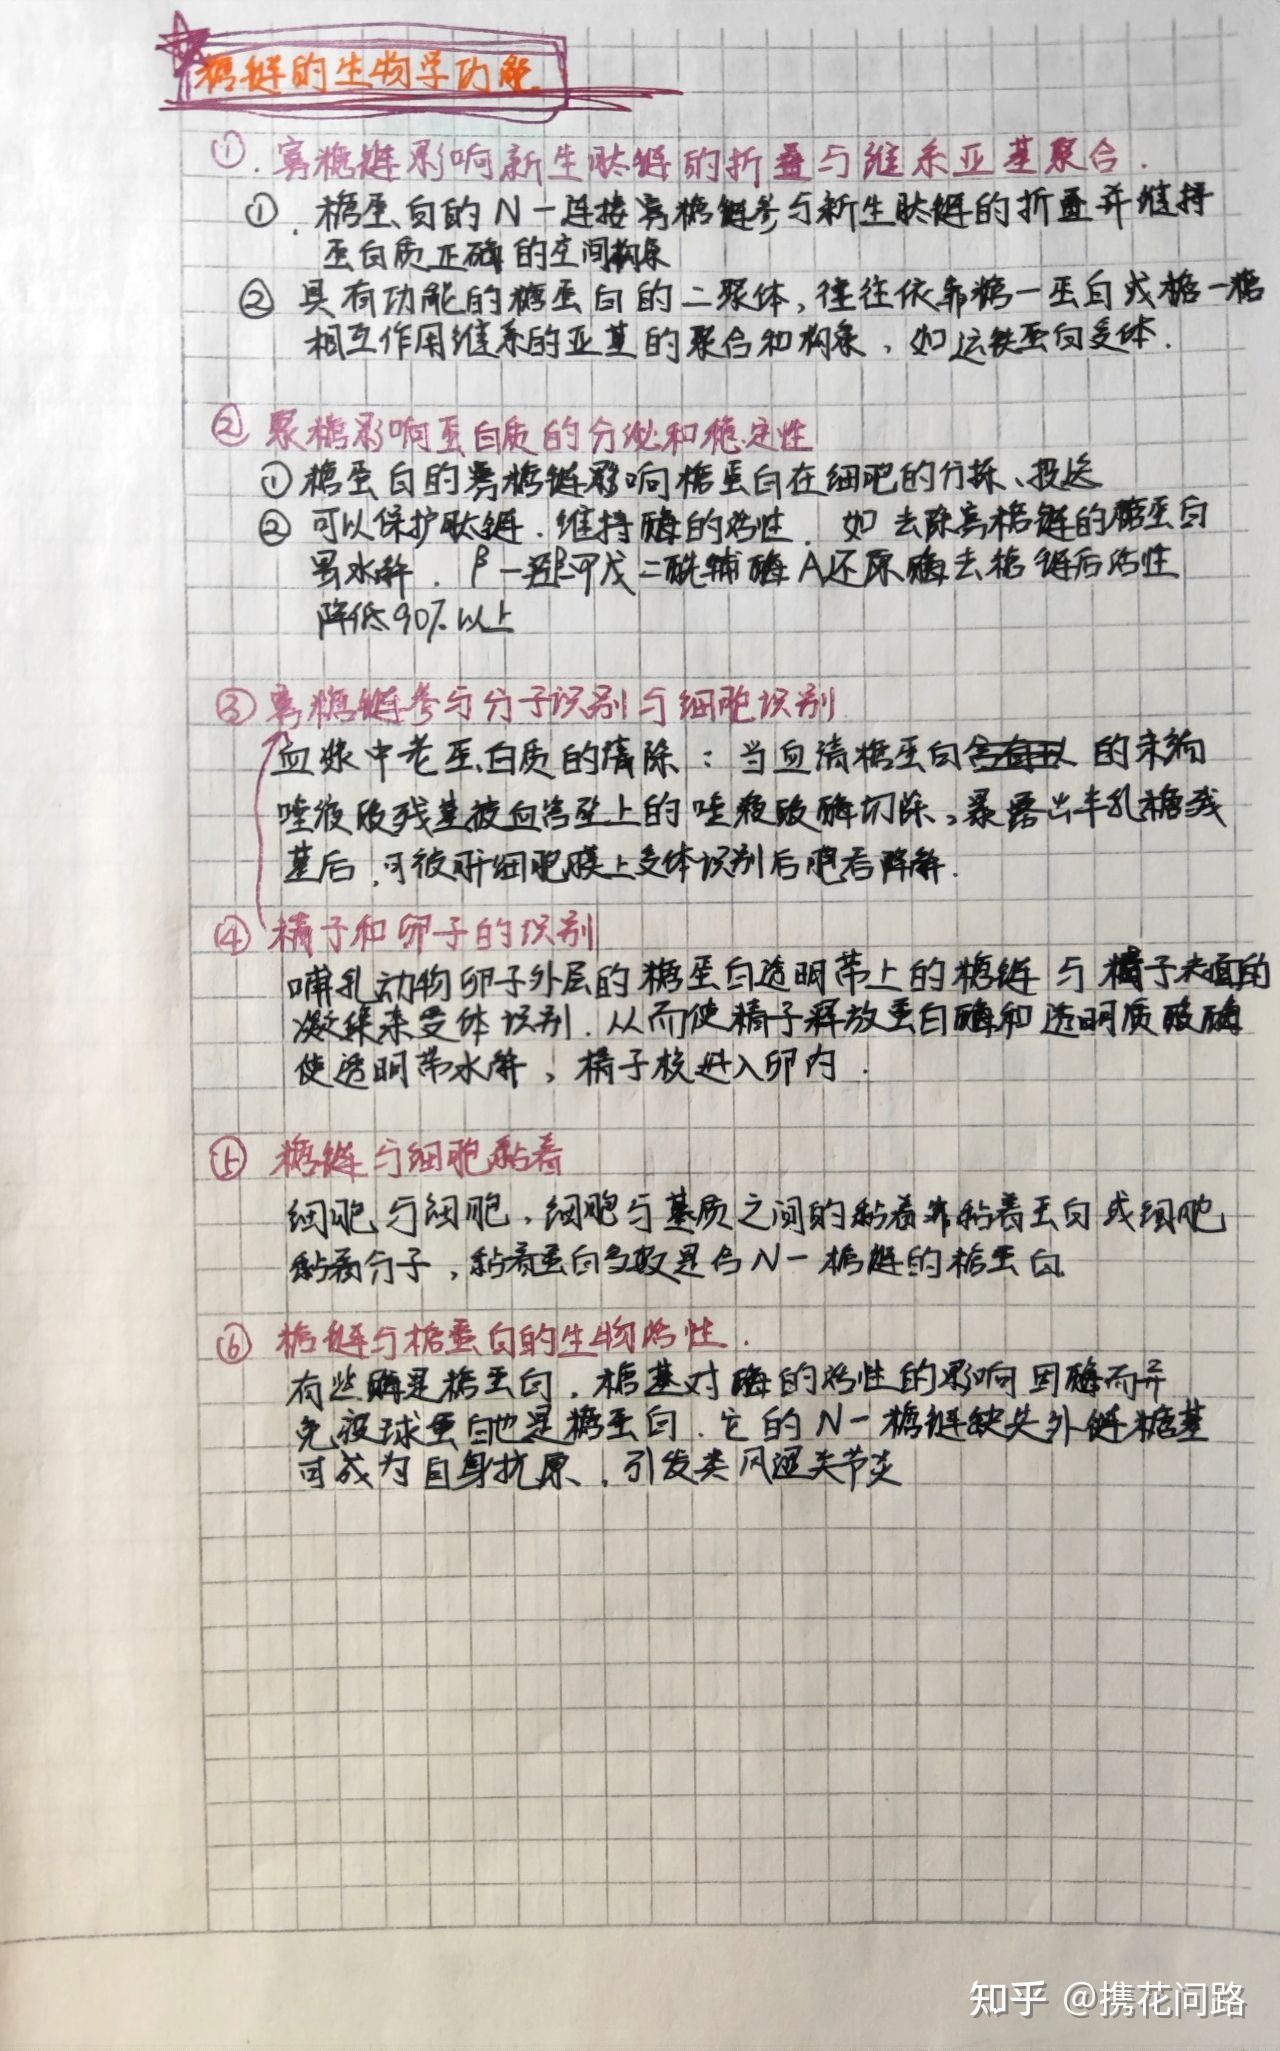 糖链的生物学功能
①. 寡糖链影响新生肽链的折叠与维系亚基聚合.
①. 糖蛋白的N-连接寡糖链参与新生肽链的折叠并维持
蛋白质正确的空间构象
② 具有功能的糖蛋白的二聚体,往往依靠糖-蛋白或糖-糖
相互作用维系的亚基的聚合和构象,如运铁蛋白受体.
② 聚糖影响蛋白质的分泌和稳定性
① 糖蛋白的寡糖链影响糖蛋白在细胞的分拣、投送
② 可以保护肽链.维持酶的活性.如去除寡糖链的糖蛋白
易水解.β-羟β-甲戊二酰辅酶A还原酶去糖链后活性
降低90%以上
③ 寡糖链参与分子识别与细胞识别
血浆中老蛋白质的清除:当血清糖蛋白的末端
唾液酸残基被血管壁上的唾液酸酶切除,暴露出半乳糖残
基后,可被肝细胞膜上受体识别后胞吞降解.
④ 精子和卵子的识别
哺乳动物卵子外层的糖蛋白透明带上的糖链与精子表面的
凝集素受体识别.从而使精子释放蛋白酶和透明质酸酶
使透明带水解,精子核进入卵内.
⑤ 糖链与细胞黏着
细胞与细胞,细胞与基质之间的黏着靠黏着蛋白或细胞
黏着分子,黏着蛋白多数是含N-糖链的糖蛋白
⑥ 糖链与糖蛋白的生物活性.
有些酶是糖蛋白,糖基对酶的活性的影响因酶而异
免疫球蛋白也是糖蛋白.它的N-糖链缺失外链糖基
可成为自身抗原,引发类风湿关节炎
知乎 @携花问路